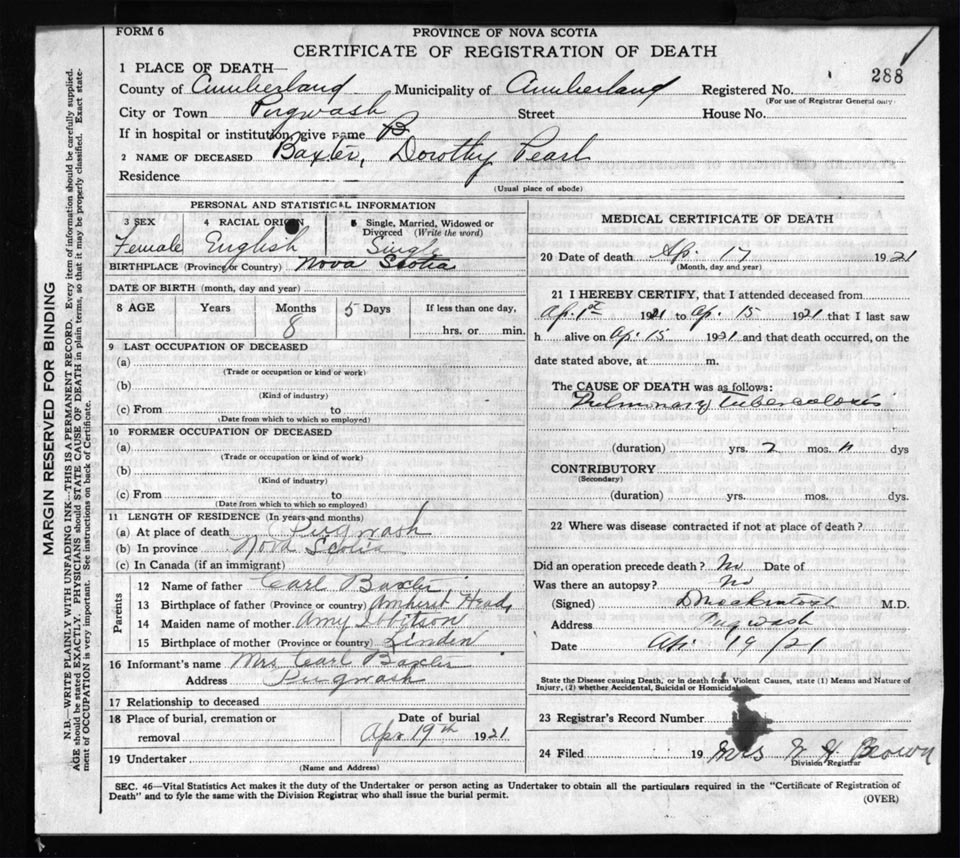 FORM 6
PROVINCE OF NOVA SCOTIA
CERTIFICATE OF REGISTRATION OF DEATH
288
1 PLACE OF DEATH—
County of Cumberland Municipality of Cumberland Registered No.
(For use of Registrar General only)
City or Town Pugwash Street House No.
If in hospital or institution, give name B
2 NAME OF DECEASED Baxter, Dorothy Pearl
Residence
(Usual place of abode)
PERSONAL AND STATISTICAL INFORMATION
3 SEX 4 RACIAL ORIGIN 5 Single, Married, Widowed or Divorced (Write the word)
Female English Single
BIRTHPLACE (Province or Country) Nova Scotia
DATE OF BIRTH (month, day and year)
8 AGE Years Months Days If less than one day,
8 5 hrs. or min.
9 LAST OCCUPATION OF DECEASED
(a)
(Trade or occupation or kind of work)
(b)
(Kind of industry)
(c) From to
(Date from which to which so employed)
10 FORMER OCCUPATION OF DECEASED
(a)
(Trade or occupation or kind of work)
(b)
(Kind of industry)
(c) From to
(Date from which to which so employed)
11 LENGTH OF RESIDENCE (In years and months)
(a) At place of death Pugwash
(b) In province Nova Scotia
(c) In Canada (if an immigrant)
Parents
12 Name of father Carl Baxter
13 Birthplace of father (Province or country) Amherst Head
14 Maiden name of mother Amy
15 Birthplace of mother (Province or country) Linden
16 Informant's name Mrs Carl Baxter
Address Pugwash
17 Relationship to deceased
18 Place of burial, cremation or removal Date of burial
Apr 19th 1921
19 Undertaker
(Name and Address)
MEDICAL CERTIFICATE OF DEATH
20 Date of death Ap. 17 1921
(Month, day and year)
21 I HEREBY CERTIFY, that I attended deceased from
Ap. 1st 1921 to Ap. 15 1921 that I last saw
h alive on Ap. 15 1921 and that death occurred, on the
date stated above, at m.
The CAUSE OF DEATH was as follows:
Pulmonary Tuberculosis
(duration) yrs. 2 mos. 11 dys
CONTRIBUTORY
(Secondary)
(duration) yrs. mos. dys.
22 Where was disease contracted if not at place of death?
Did an operation precede death? No Date of
Was there an autopsy? No
(Signed) M.D.
Address Pugwash
Date Ap. 19/21
State the Disease causing Death, or in death from Violent Causes, state (1) Means and Nature of
Injury, (2) whether Accidental, Suicidal or Homicidal
23 Registrar's Record Number
24 Filed 19 Mrs W. H. Brown
Division Registrar
SEC. 46—Vital Statistics Act makes it the duty of the Undertaker or person acting as Undertaker to obtain all the particulars required in the "Certificate of Registration of
Death" and to fyle the same with the Division Registrar who shall issue the burial permit.
(OVER)
MARGIN RESERVED FOR BINDING
N.B.—WRITE PLAINLY WITH UNFADING INK—THIS IS A PERMANENT RECORD. Every item of information should be carefully supplied.
AGE should be stated EXACTLY. PHYSICIANS should STATE CAUSE OF DEATH in plain terms, so that it may be properly classified. Exact state-
ment of OCCUPATION is very important. See instructions on back of Certificate.